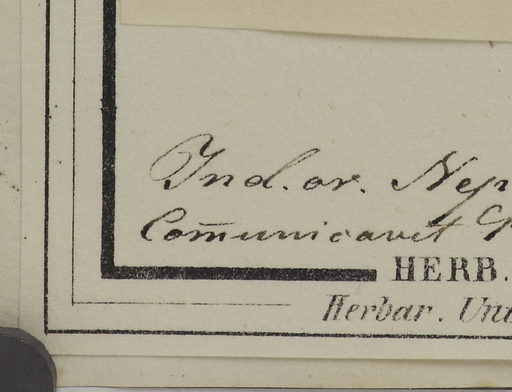 Ind. or. Nep
Com̄unicavit
HERB.
Herbar. Uni